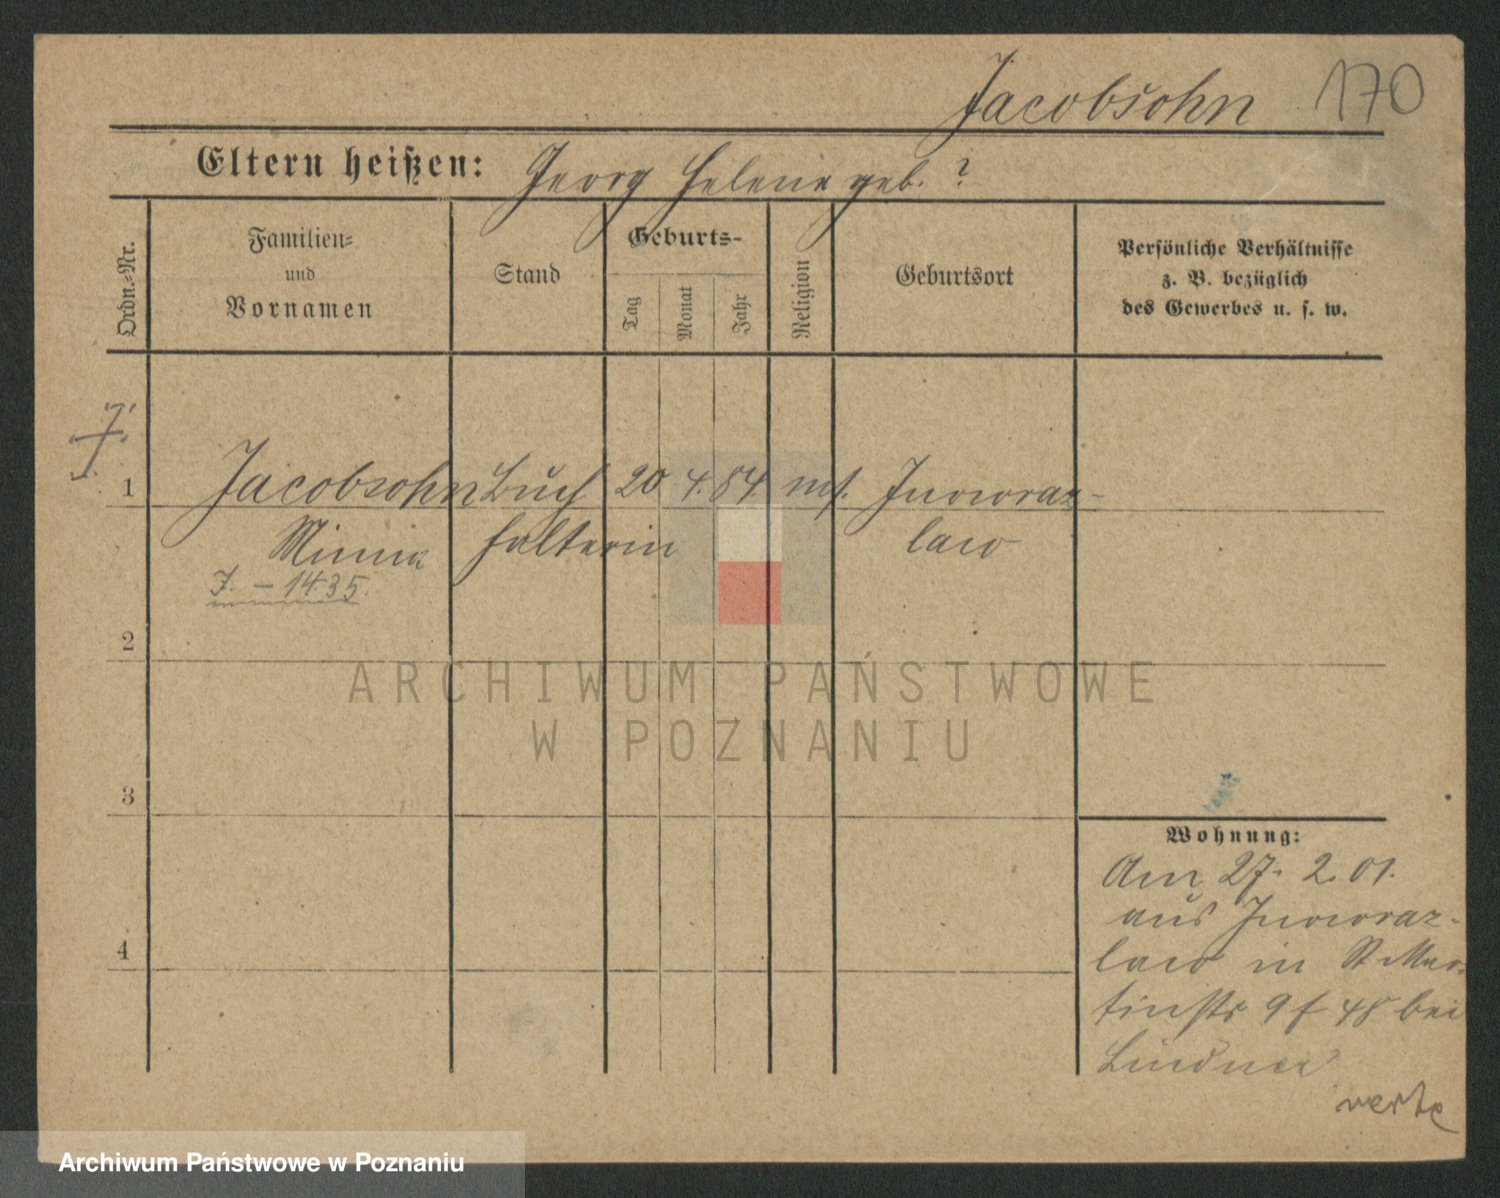 Jacobsohn 170
Eltern heißen: Georg Helene geb. ?
Ordn.-Nr.
Familien-
und
Vornamen
Stand
Geburts-
Tag
Monat
Jahr
Religion
Geburtsort
Persönliche Verhältnisse
z. B. bezüglich
des Gewerbes u. s. w.
1 Jacobsohn Buch 20 4. 84 mos. Inowraz-
Minna halterin law
J. - 1435.
2
ARCHIWUM PAŃSTWOWE
W POZNANIU
3
Wohnung:
Am 27. 2. 01.
aus Inowraz-
4
law in St Mar-
tinstr 9 48 bei
Lindner
verte
Archiwum Państwowe w Poznaniu